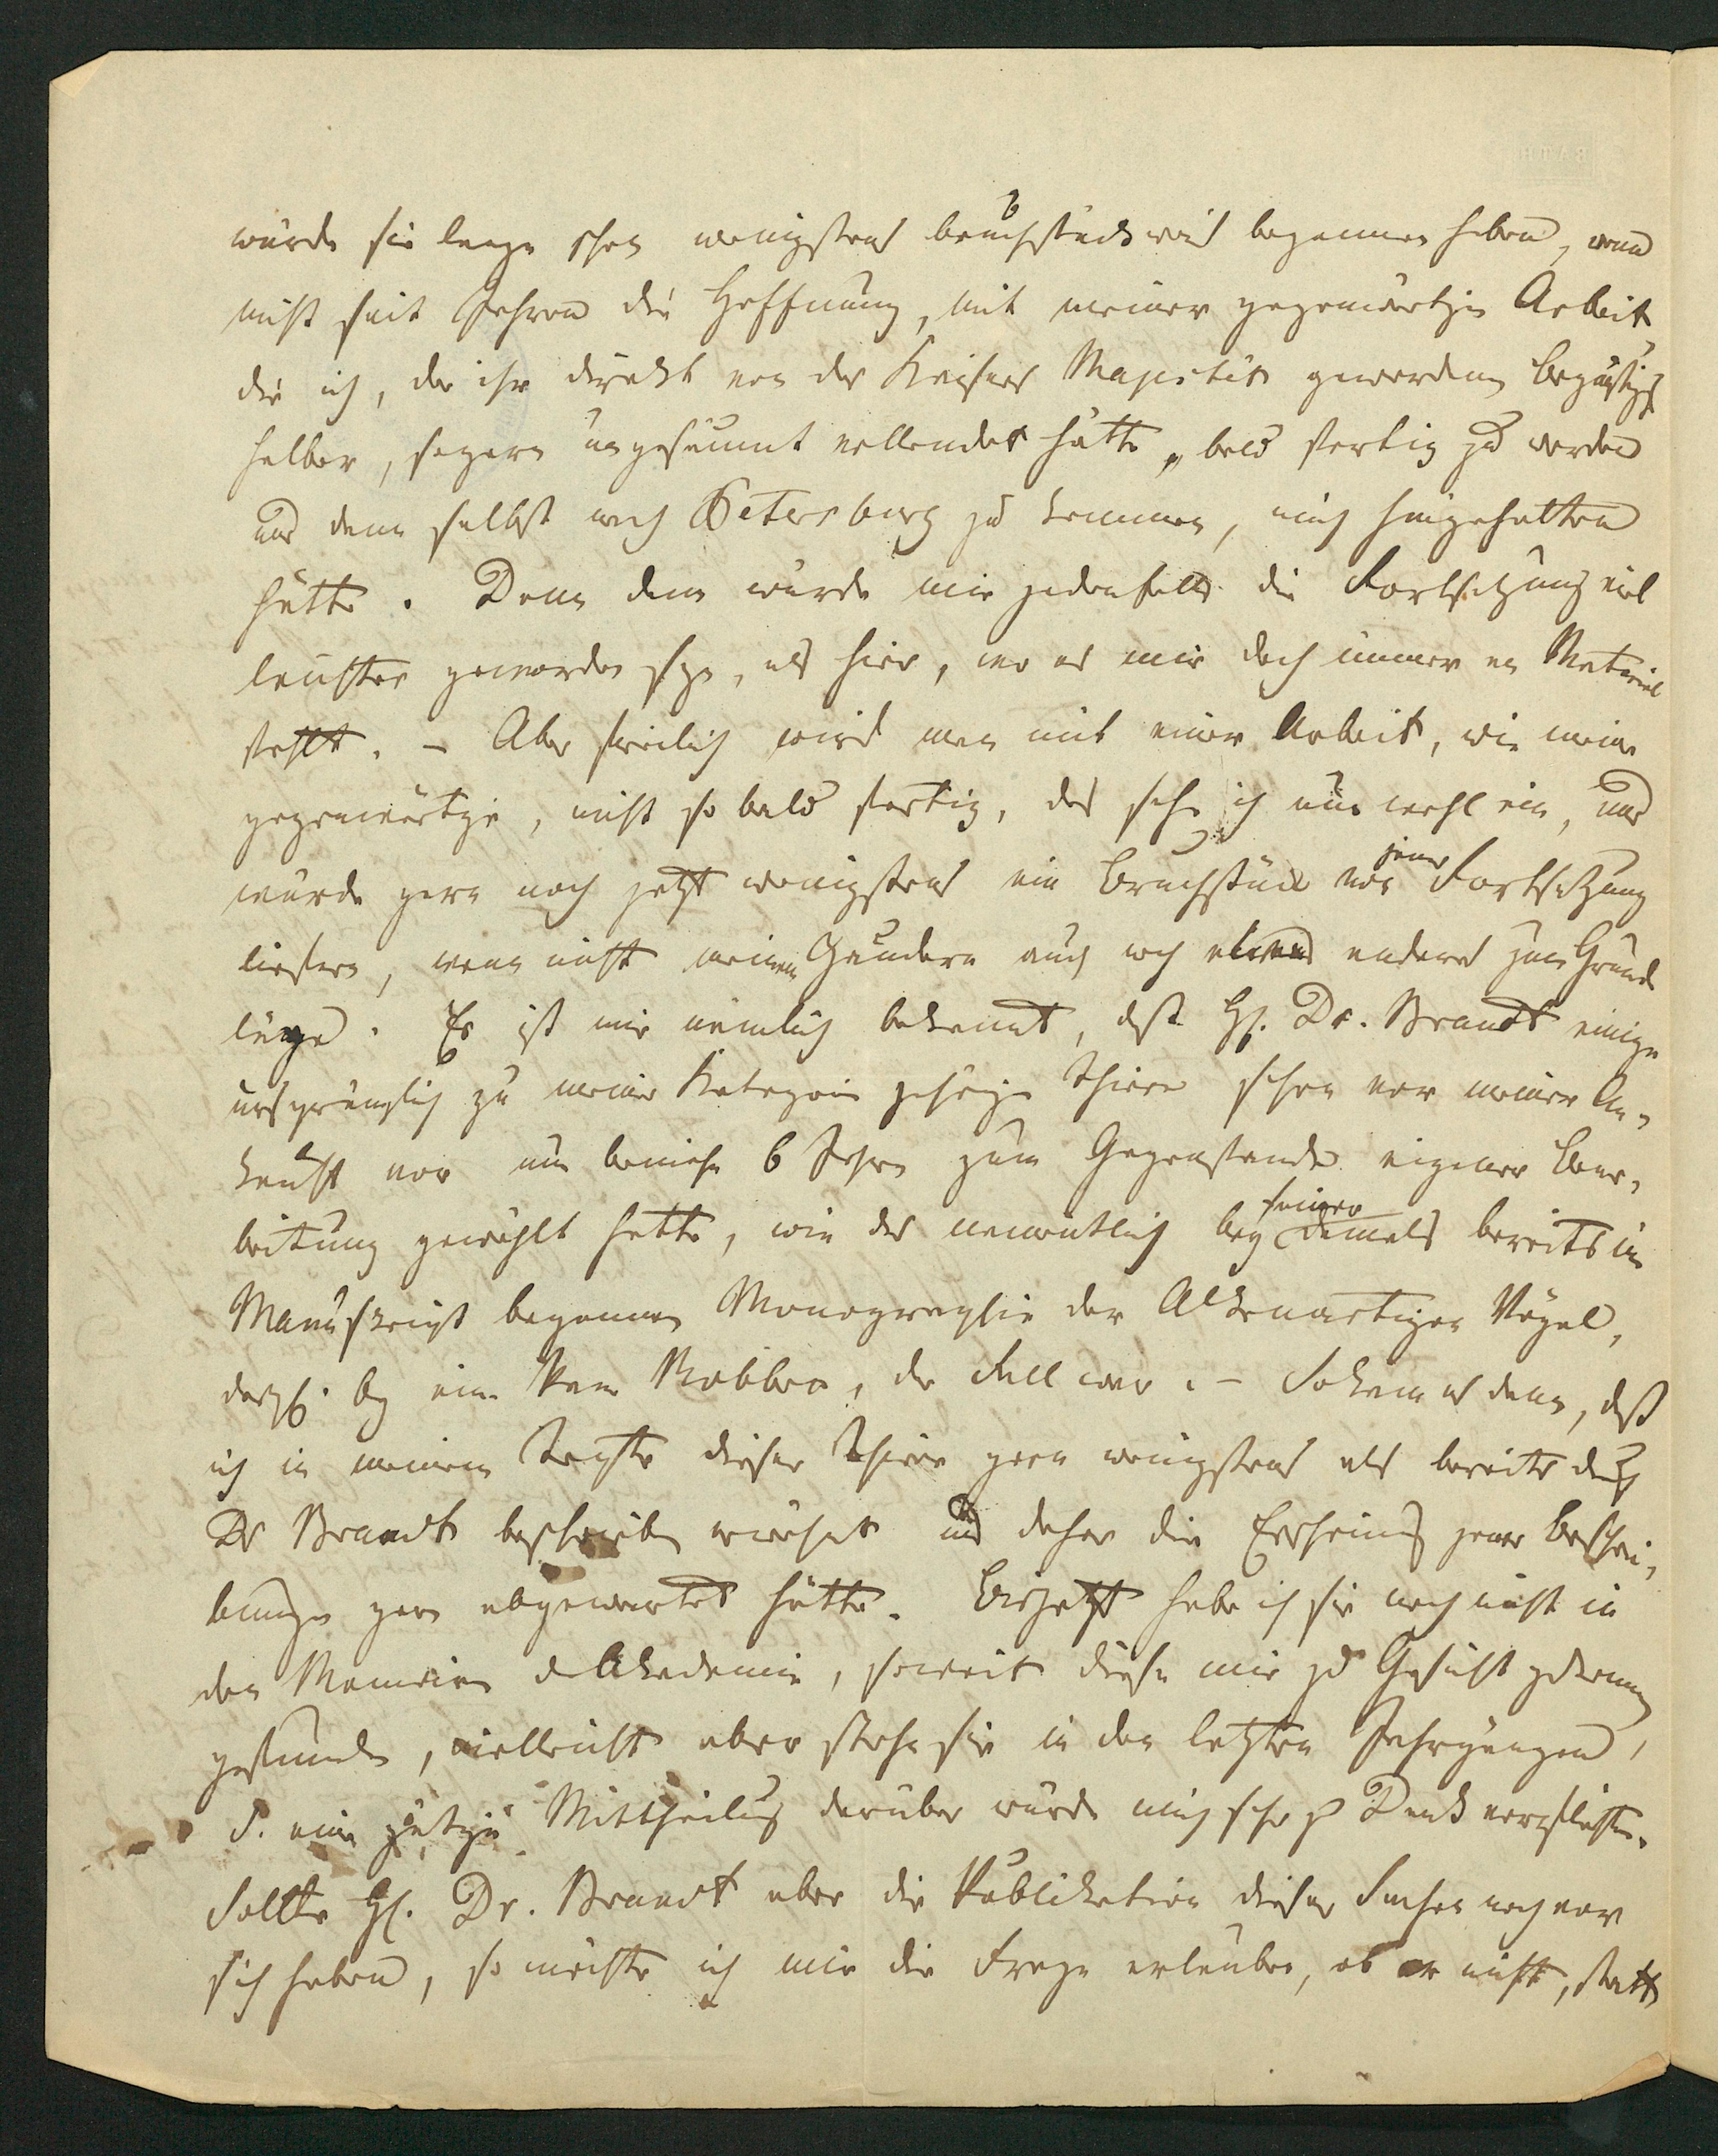 würde sie lange schon wenigstens bruchstücksweis begonnen haben, wenn
nicht seit Jahren die Hoffnung, mit meiner gegenwärtigen Arbeit,
die ich, der ihr direkt von der Kaisers Majestät gewordenen
halber, so gern ungesäumt vollendet hätte, bald fertig zu werden
und dann selbst nach Petersburg zu kommen, mich hingehalten
hätte. Denn dann würde mir jedenfalls die Fortsetzung viel
leichter geworden seyn, als hier, wo es mir doch immer an Material
fehlt. – Aber freilich wird man mit einer Arbeit, wie meine
gegenwärtige, nicht so bald fertig, das sehe ich nun wohl ein, und
würde gern noch jetzt wenigstens ein Bruchstück von jener Fortsetzung
liefern, wenn nicht meinem Zaudern auch noch etwas anderes zum Grunde
läge. Es ist mir nämlich bekannt, daß H. Dr. Brandt einige
ursprünglich zu meiner Kategorie gehörige Thiere schon vor meiner An-
kunft vor nun beinahe 6 Jahren zum Gegenstande eigener Bear-
beitung gewählt hatte, wie das namentlich bey seiner damals bereits im
Manuskript begonnenen Monographie der Alkenartigen Vögel,
desgl. bey ein Paar Robben, der Fall war. – So kam es denn, daß
ich in meinem Texte dieser Thiere gern wenigstens als bereits durch
Dr Brandt beschrieben erwähnt und daher die Erscheinung jener Beschrei-
bungen gern abgewartet hätte. Bis jetzt habe ich sie noch nicht in
den Memoiren d Akademie, soweit diese mir zu Gesicht gekommen
gefunden, vielleicht aber stehn sie in den letzten Jahrgängen,
u. eine gütige Mittheilung darüber würde mich sehr zu Dank verpflichten.
Sollte H. Dr. Brandt aber die Publikation dieser Sachen noch vor
sich haben, so möchte ich mir die Frage erlauben, ob er nicht, statt